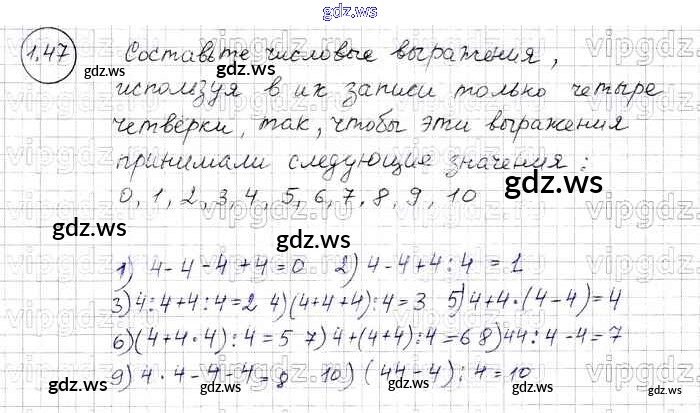 gdz.ws
1.47 Составьте числовые выражения,
gdz.ws gdz.ws
используя в их записи только четыре
четверки, так, чтобы эти выражения
принимали следующие значения:
0, 1, 2, 3, 4, 5, 6, 7, 8, 9, 10
gdz.ws
gdz.ws gdz.ws
gdz.ws gdz.ws
1) 4-4-4+4=0 2) 4-4+4:4=1
3) 4:4+4:4=2 4) (4+4+4):4=3 5) 4+4·(4-4)=4
6) (4+4·4):4=5 7) 4+(4+4):4=6 8) 44:4-4=7
9) 4·4-4-4=8 10) (44-4):4=10
gdz.ws gdz.ws gdz.ws
gdz.ws